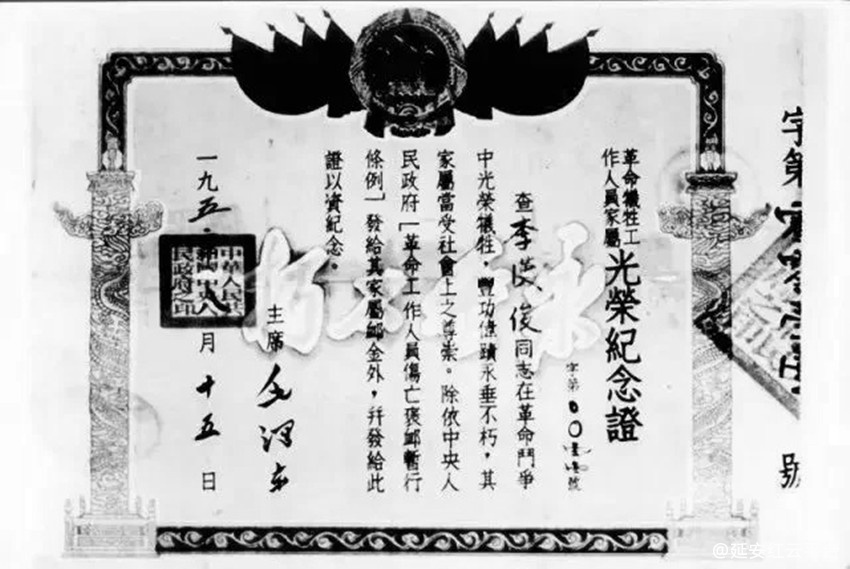 字第
號
革命犧牲工
作人員家屬
光榮紀念證
字第
號
查李英俊同志在革命鬥爭
中光榮犧牲，豐功偉蹟永垂不朽，其
家屬當受社會上之尊崇。除依中央人
民政府「革命工作人員傷亡褒卹暫行
條例」發給其家屬卹金外，幷發給此
證以資紀念。
永垂不朽
主席 毛澤東
一九五
月十五日
中華人民共
和國中央人
民政府之印
@延安